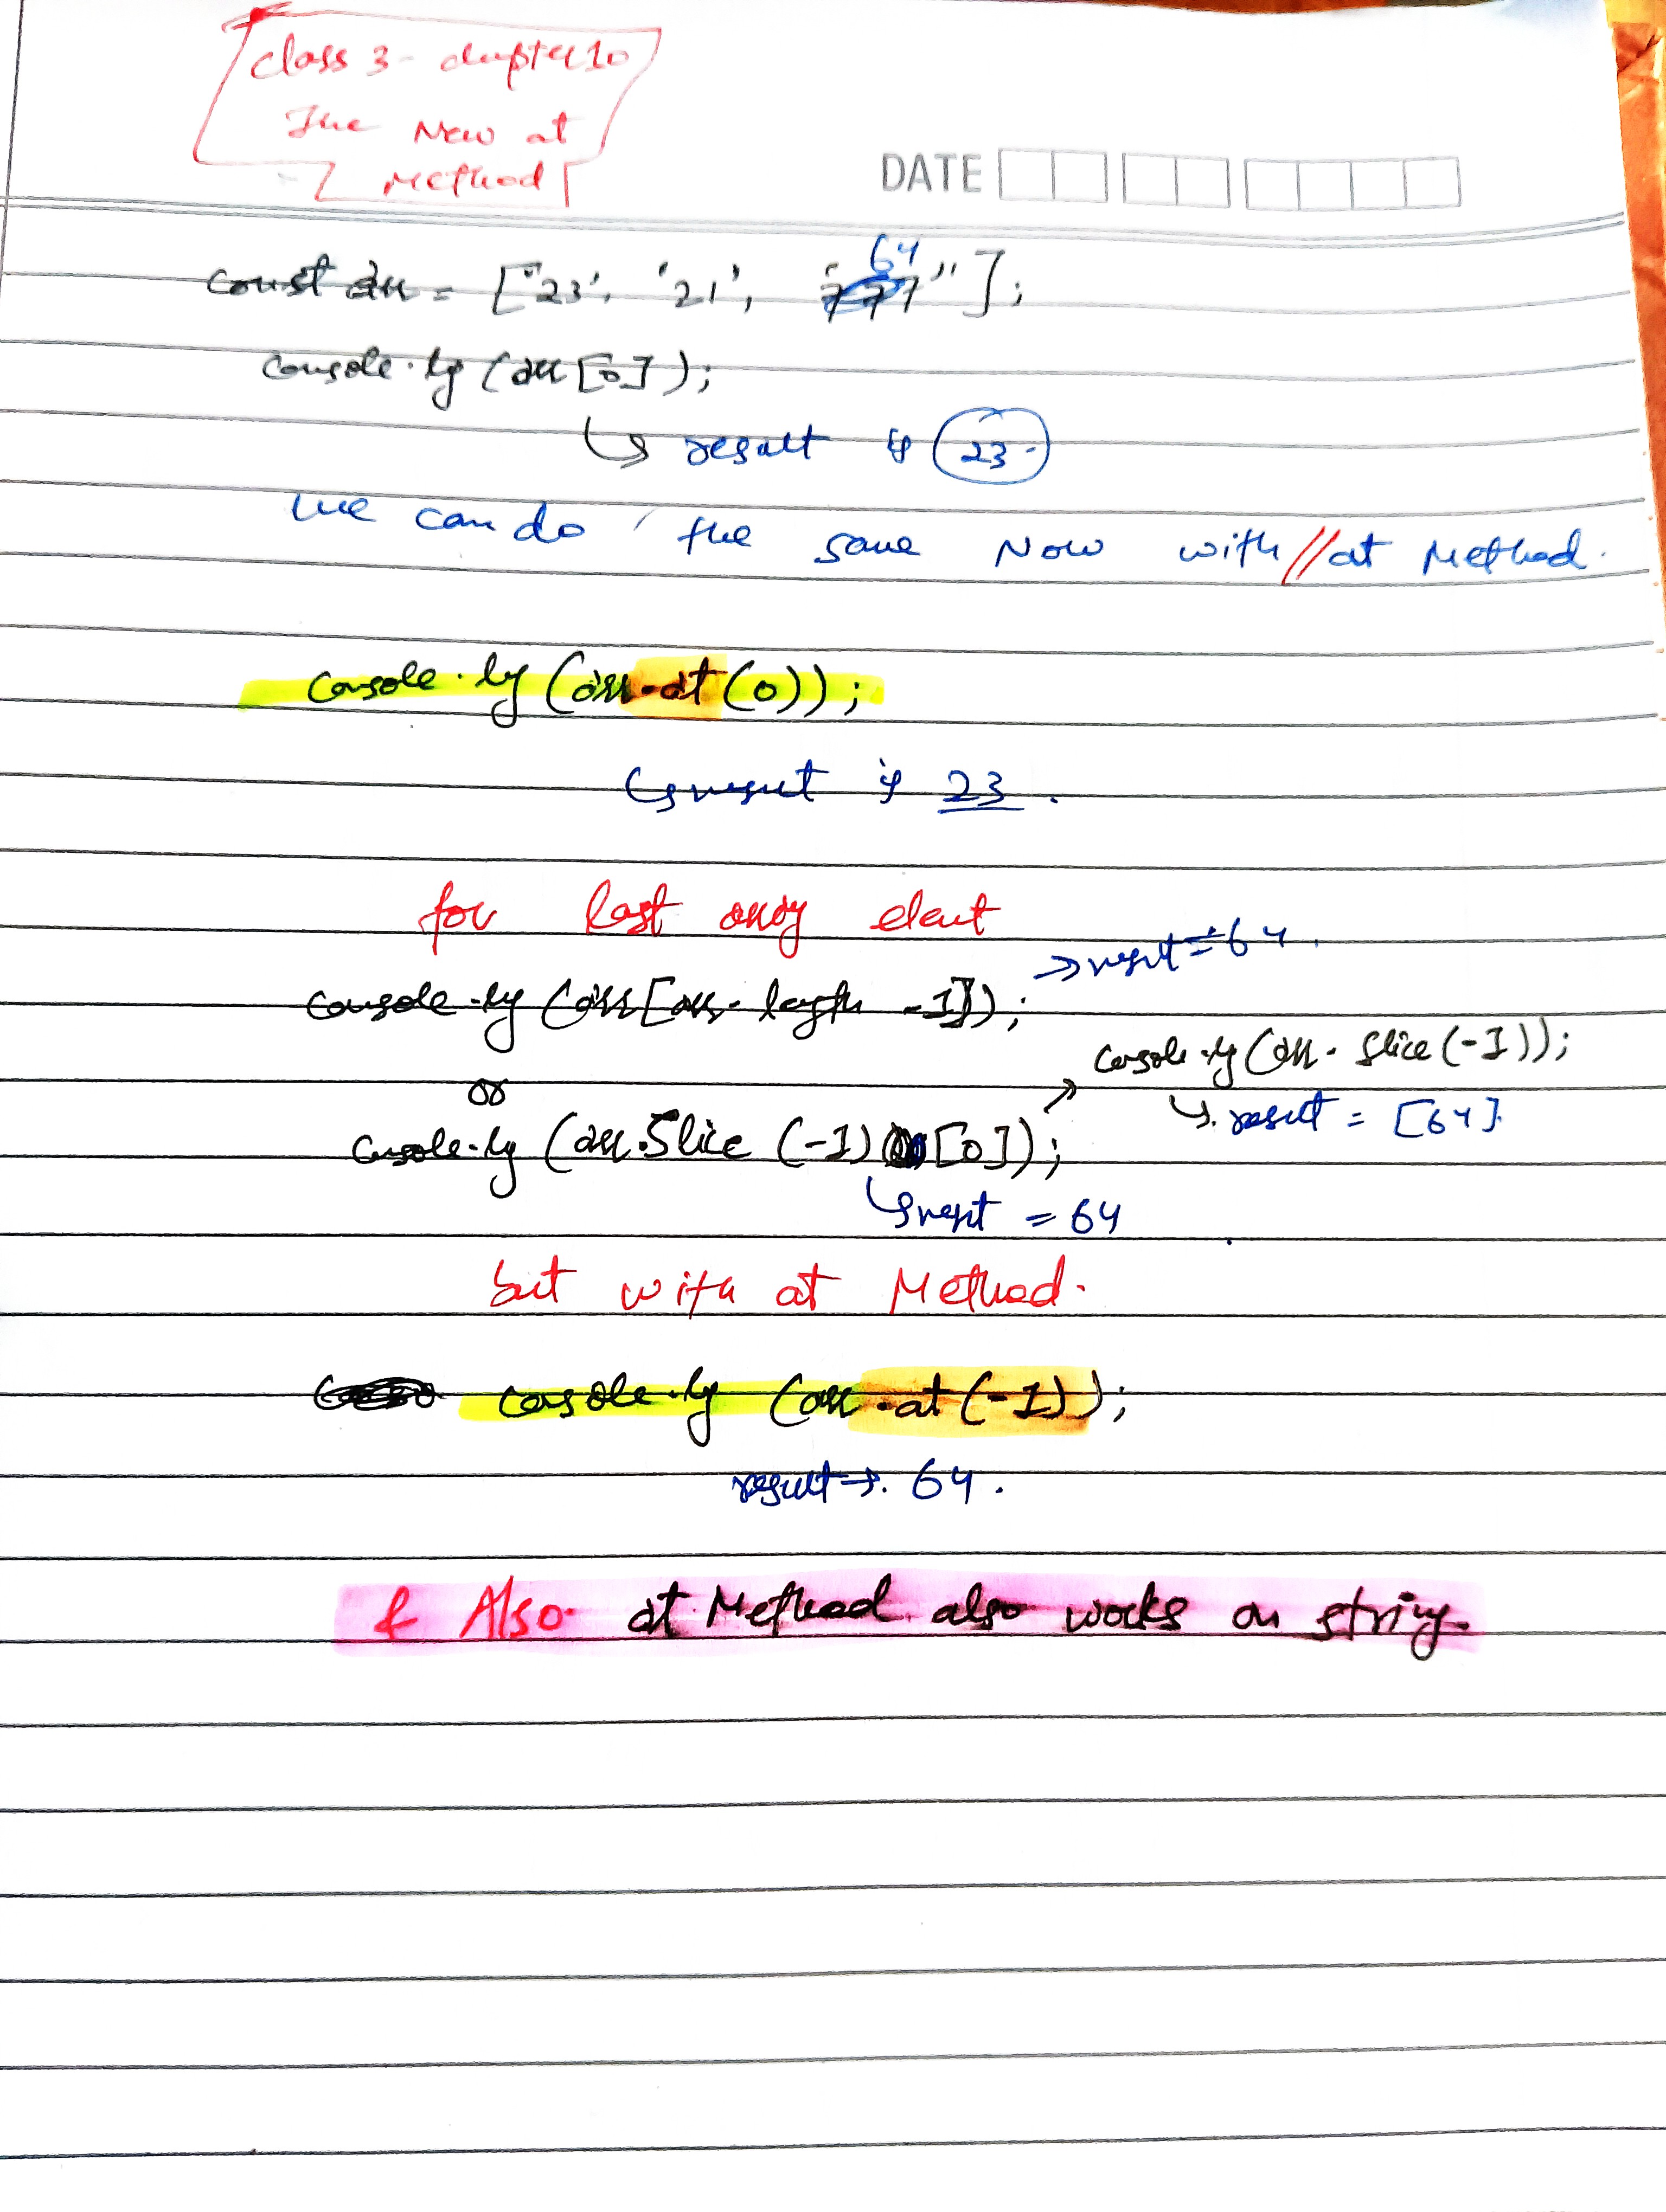 class 3 - chapter 10
The New at
Method
DATE
const arr = ["23', '21', '64"];
console.log (arr[0]);
↳ result is 23.
we can do the same Now with // at Method.
console.log (arr.at(0));
↳ result is 23.
for last array elent
console.log (arr[arr.length -1]); → result = 64.
or
console.log (arr.Slice (-1)[0]); → console.log (arr.Slice (-1));
↳ result = [64].
↳ result = 64
but with at Method.
console.log (arr.at(-1));
result →. 64.
& Also at Method also works on string.